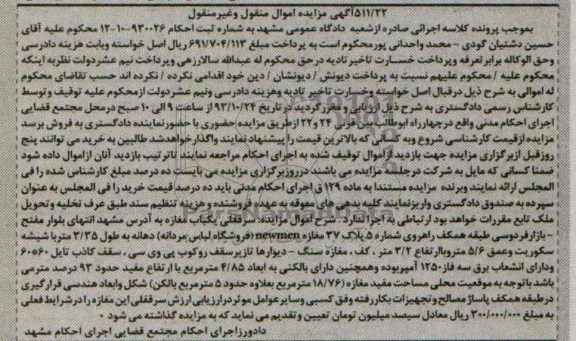 ۵۱۱/۲۲آگهی مزایده اموال منقول وغیرمنقول
بموجب پرونده کلاسه اجرائی صادره ازشعبه دادگاه عمومی مشهد به شماره ثبت احکام ۹۳۰۰۲۶-۱۰-۱۲ محکوم علیه آقای
حسین دشتیان گودی - محمد واحدانی پورمحکوم است به پرداخت مبلغ ۶۹۱/۷۰۴/۱۱۳ ریال اصل خواسته وبابت هزینه دادرسی
وحق الوکاله برابر تعرفه وپرداخت خسـارت تاخیر تادیه درحق محکوم له عبدالله سالارزهی وپرداخت نیم عشردولت نظربه اینکه
محکوم علیه / محکوم علیهم نسبت به پرداخت دیونش / دیونشان / دین خود اقدامی نکرده / نکرده اند حسب تقاضای محکوم
له اموالی به شرح ذیل درقبال اصل خواسته وخسارت تاخیر تادیه وهزینه دادرسی ونیم عشردولت ازمحکوم علیه توقیف وتوسط
کارشناس رسمی دادگستری به شرح ذیل ارزیابی ومقرر گردید در تاریخ ۹۳/۱۰/۲۴ از ساعت ۹ الی ۱۰ صبح درمحل مجتمع قضایی
اجرای احکام مدنی واقع درچهارراه ابوطالب بین قرنی ۲۴ و ۲۲ ازطریق مزایده حضوری با حضورنماینده دادگستری به فروش برسد
مزایده ازقیمت کارشناسی شروع وبه کسانی که بالاترین قیمت را پیشنهاد نمایند واگذارخواهدشد طالبین به خرید می توانند پنج
روزقبل ازبرگزاری مزایده جهت بازدید ازاموال توقیف شده به اجرای احکام مراجعه نمایند تاترتیب بازدید آنان ازاموال داده شود
ضمنا کسانی که مایل به شرکت درجلسه مزایده می باشند درروزبرگزاری مزایده می بایست ده درصد مبلغ کارشناس شده را فی
المجلس ارائه نمایند وبرنده مزایده مستندا به ماده ۱۲۹ ق اجرای احکام مدنی باید ده درصد قیمت خرید را فی المجلس به عنوان
سپرده به صندوق دادگستری واریزنمایند کلیه بدهی های معوقه به عهده فروشنده وهزینه تنظیم سند طبق عرف تخلیه وتحویل
ملک تابع مقررات خواهد بود ارتباطی به اجرا ندارد. شرح اموال مزایده: سرقفلی یکباب مغازه به آدرس مشهد انتهای بلوار مفتح
- بازارفردوسی طبقه همکف راهروی شماره ۵ پلاک ۳۷ مغازه newmen (فروشگاه لباس مردانه) دهانه به طول ۳/۳۵ متر با شیشه
سکوریت وعمق ۵/۶ متروباارتفاع ۳/۲ متر ، کف ، مغازه سنگ - دیوارها تازیرسقف روکوب پی وی سی ، سقف کاذب تایل ۶۰*۶۰
ودارای انشعاب برق سه فاز ۱۲۵۰ آمپربوده وهمچنین دارای بالکنی به ابعاد ۴/۸۵ مترمربع با ارتفاع مفید حدود ۹۳ درصد مترمی
باشد باتوجه به موقعیت محلی مساحت مفید مغازه (۱۸/۷۶ مترمربع بعلاوه حدود ۵ مترمربع بالکن) شکل وابعاد هندسی قرارگیری
درطبقه همکف پاساژ مصالح وتجهیزات بکاررفته وفق کسبی وسایر عوامل موثر درارزیابی ارزش سرقفلی این مغازه را درشرایط فعلی
به مبلغ ۳۰۰/۰۰۰/۰۰۰ ریال معادل سیصد میلیون تومان تعیین وتقدیم می نماید که به مزایده گذاشته می شود .
دادورز اجرای احکام مجتمع قضایی اجرای احکام مشهد